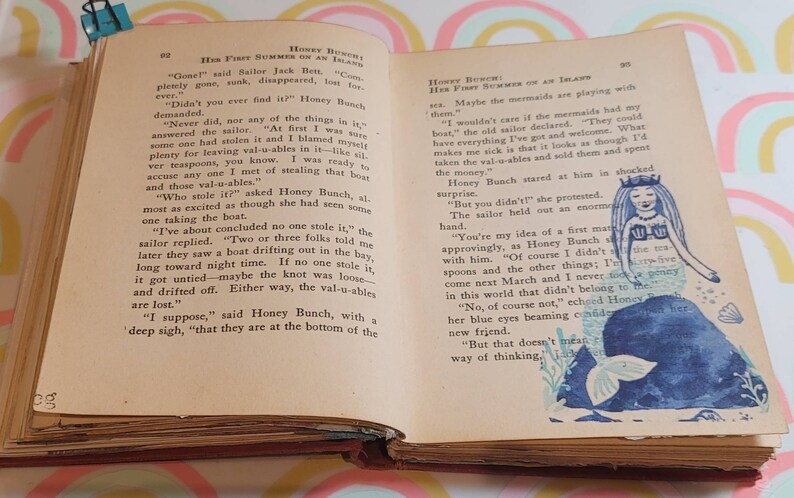 92
HONEY BUNCH:
HER FIRST SUMMER ON AN ISLAND
"Gone!" said Sailor Jack Bett. "Com-
pletely gone, sunk, disappeared, lost for-
ever."
"Didn't you ever find it?" Honey Bunch
demanded.
"Never did, nor any of the things in it,"
answered the sailor. "At first I was sure
some one had stolen it and I blamed myself
plenty for leaving val-u-ables in it—like sil-
ver teaspoons, you know. I was ready to
accuse any one I met of stealing that boat
and those val-u-ables."
"Who stole it?" asked Honey Bunch, al-
most as excited as though she had seen some
one taking the boat.
"I've about concluded no one stole it," the
sailor replied. "Two or three folks told me
later they saw a boat drifting out in the bay,
long toward night time. If no one stole it,
it got untied—maybe the knot was loose—
and drifted off. Either way, the val-u-ables
are lost."
"I suppose," said Honey Bunch, with a
deep sigh, "that they are at the bottom of the
HONEY BUNCH:
HER FIRST SUMMER ON AN ISLAND
sea. Maybe the mermaids are playing with
them."
"I wouldn't care if the mermaids had my
boat," the old sailor declared. "They could
have everything I've got and welcome. What
makes me sick is that it looks as though I'd
taken the val-u-ables and sold them and spent
the money."
Honey Bunch stared at him in shocked
surprise.
"But you didn't!" she protested.
The sailor held out an enormous
hand.
"You're my idea of a first
approvingly, as Honey Bunch
with him. "Of course I didn't the tea-
spoons and the other things; I'm sixty-five
come next March and I never took a penny
in this world that didn't belong to me."
"No, of course not," echoed Honey
her blue eyes beaming upon her
new friend.
"But that doesn't mean
way of thinking," Jack